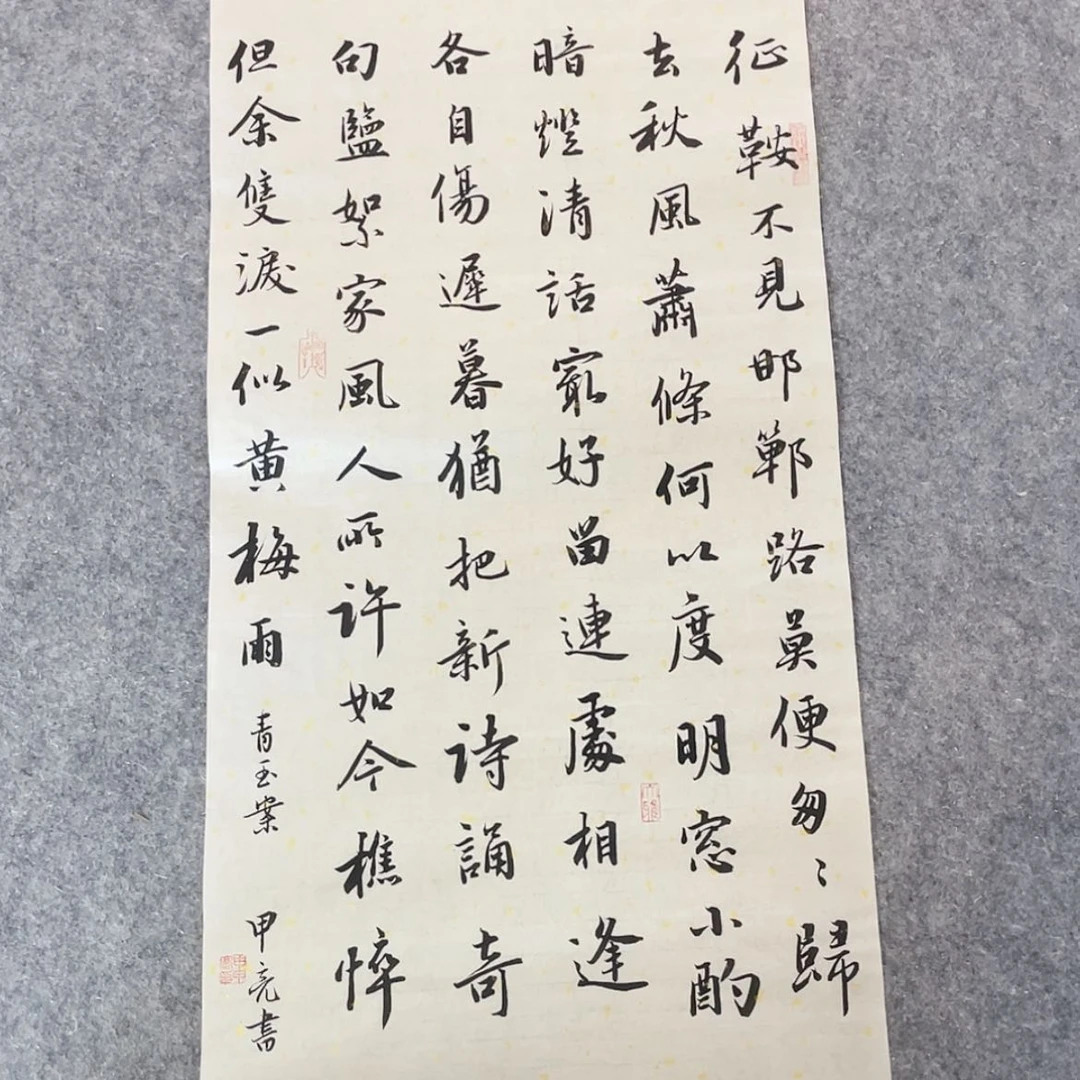 征鞍不見邯鄲路莫便匆〻歸
去秋風蕭條何以度明窓小酌
暗燈清話㝡好留連處相逢
各自傷遲暮猶把新詩誦奇
句鹽絮家風人所許如今樵悴
但余隻淚一似黄梅雨 青玉案 甲亮書